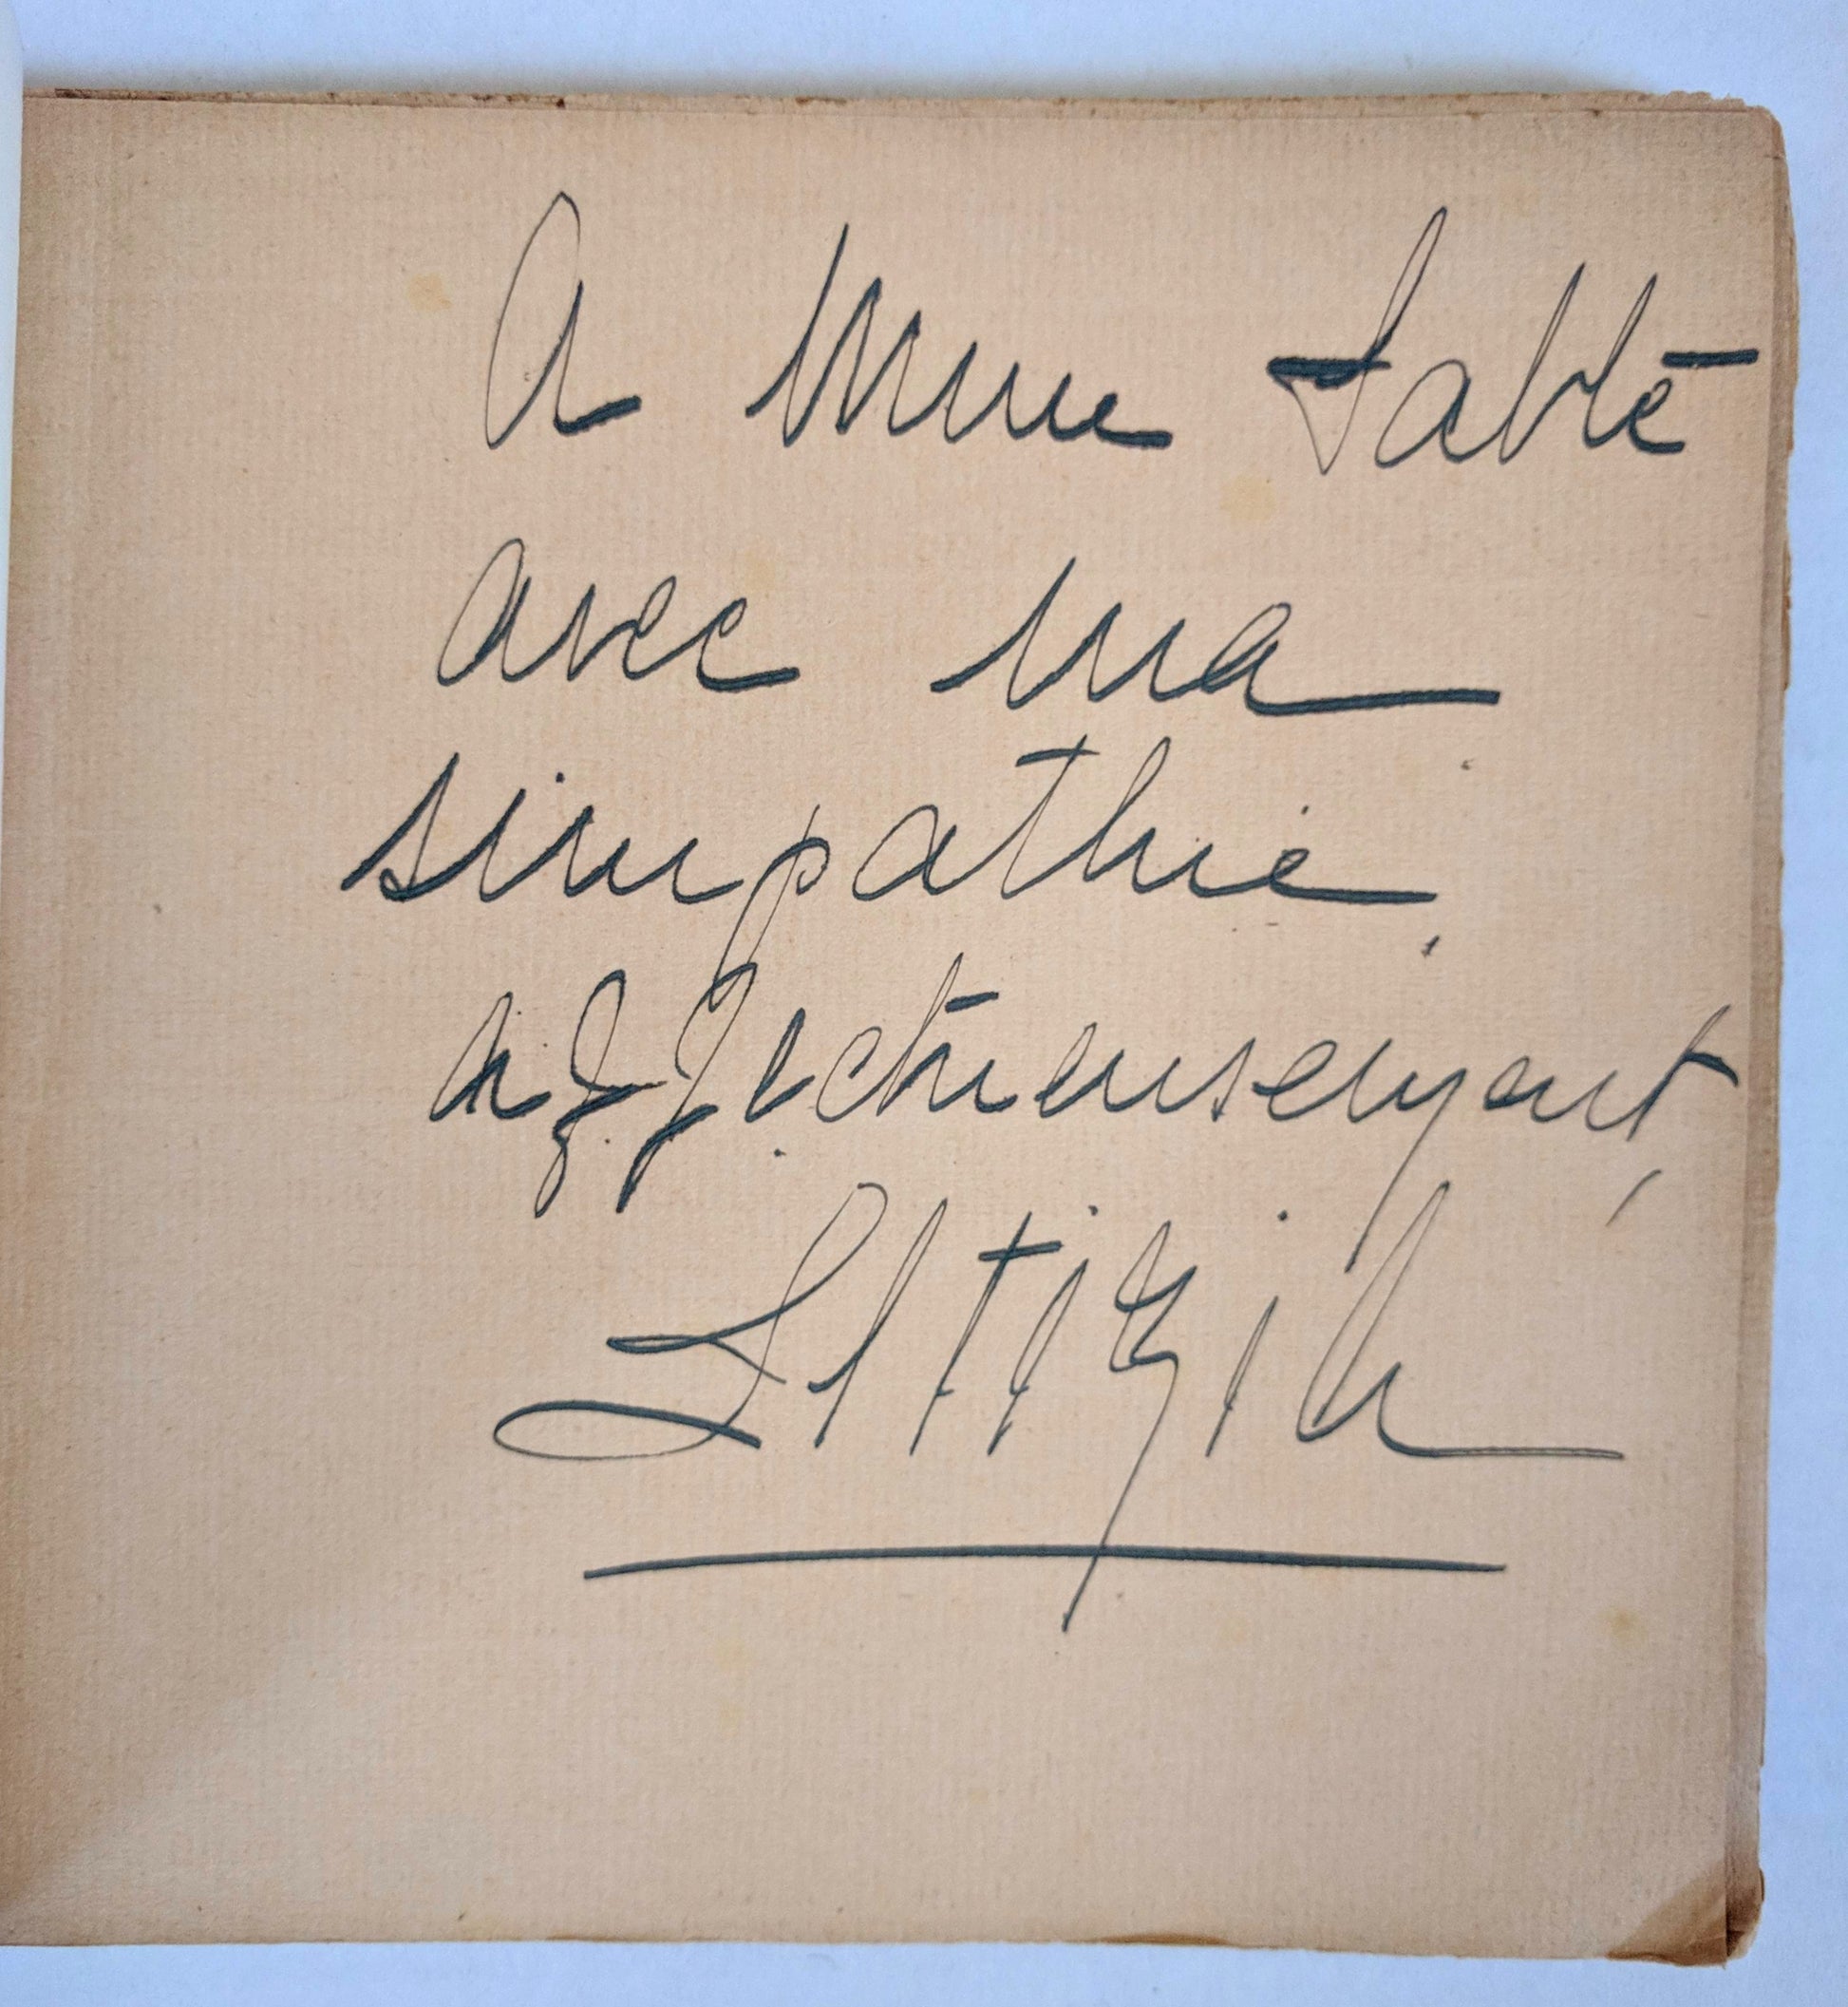 A Mme
avec ma
simpathie.
affectueusement,